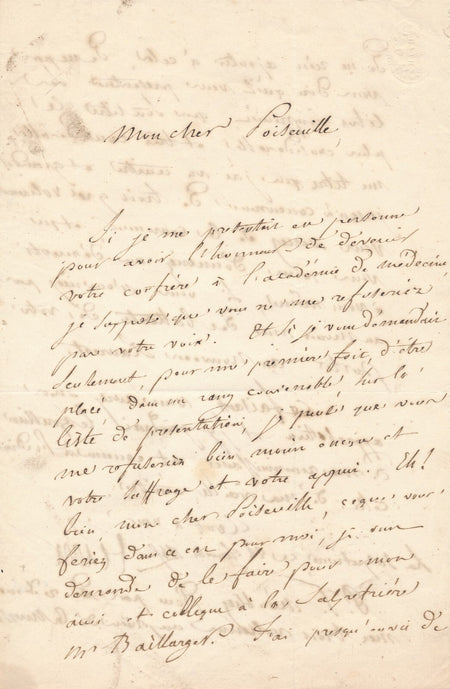 Mon cher Poiseville,
Si je me présentait en personne
pour avoir l'honneur de devenir
votre confrère à l'académie de médecine
je suppose que vous ne me refuseriez
pas votre voix. Et si je vous demandais
seulement, pour une première fois, d'être
placé dans un rang convenable sur la
liste de présentation, je pense que vous
me refuseriez bien moins encore et
votre suffrage et votre appui. Eh!
bien, mon cher Poiseville, ce que vous
feriez dans ce cas pour moi, je vous
demande de le faire pour mon
ami et collègue à la Salpétrière
Mr Baillarger. J'ai presqu'envie de